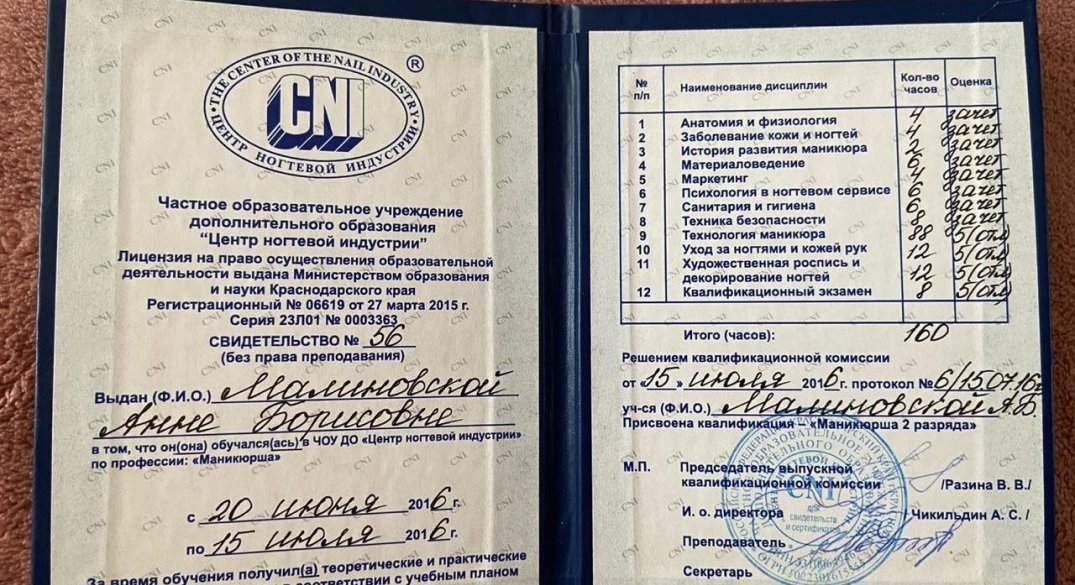 THE CENTER OF THE NAIL INDUSTRY
CNI
®
ЦЕНТР НОГТЕВОЙ ИНДУСТРИИ
Частное образовательное учреждение
дополнительного образования
“Центр ногтевой индустрии”
Лицензия на право осуществления образовательной
деятельности выдана Министерством образования
и науки Краснодарского края
Регистрационный № 06619 от 27 марта 2015 г.
Серия 23Л01 № 0003363
СВИДЕТЕЛЬСТВО № 56
(без права преподавания)
Выдан (Ф.И.О.) Малиновской
Анне Борисовне
в том, что он(она) обучался(ась) в ЧОУ ДО «Центр ногтевой индустрии»
по профессии: «Маникюрша»
с 20 июня 2016г.
по 15 июля 2016г.
За время обучения получил(а) теоретические и практические
соответствии с учебным планом
№ п/п Наименование дисциплин Кол-во часов Оценка
1 Анатомия и физиология 4 зачет
2 Заболевание кожи и ногтей 4 зачет
3 История развития маникюра 2 зачет
4 Материаловедение 6 зачет
5 Маркетинг 4 зачет
6 Психология в ногтевом сервисе 6 зачет
7 Санитария и гигиена 6 зачет
8 Техника безопасности 8 зачет
9 Технология маникюра 88 5(отл)
10 Уход за ногтями и кожей рук 12 5(отл)
11 Художественная роспись и
декорирование ногтей 12 5(отл)
12 Квалификационный экзамен 8 5(отл)
Итого (часов): 160
Решением квалификационной комиссии
от «15» июля 2016г. протокол №6/15.07.16г
уч-ся (Ф.И.О.) Малиновской А.Б.
Присвоена квалификация – «Маникюрша 2 разряда»
М.П. Председатель выпускной
квалификационной комиссии /Разина В. В./
И. о. директора /Чикильдин А. С. /
Преподаватель
Секретарь
CNI
для
свидетельств
и сертификатов